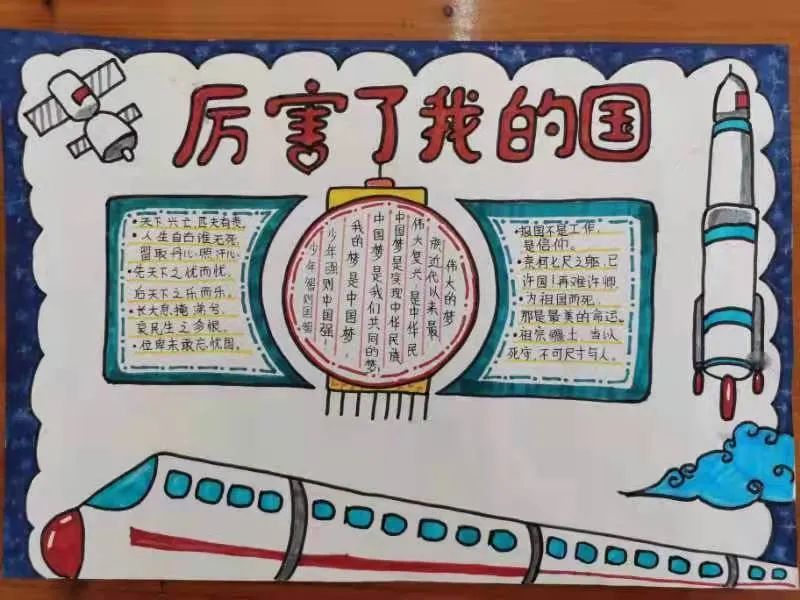 厉害了我的国
•天下兴亡,匹夫有责。
•人生自古谁无死,
留取丹心照汗心.
•先天下之忧而忧,
后天下之乐而乐。
•长大息,掩
哀民生之多
•位卑未敢忘忧国。
少年智则国智
少年强则中国强!
我的梦是中国梦,
中国梦是我们共同的梦,
中国梦是实现中华民族
伟大复兴,是中华民
族近代以来最
伟大的梦
•报国不是工作,
是信仰。
•奈何七尺之躯,已
许国!再难许卿
•为祖国而死,
那是最美的命运。
•祖宗疆土,当以
死守,不可尺寸与人。